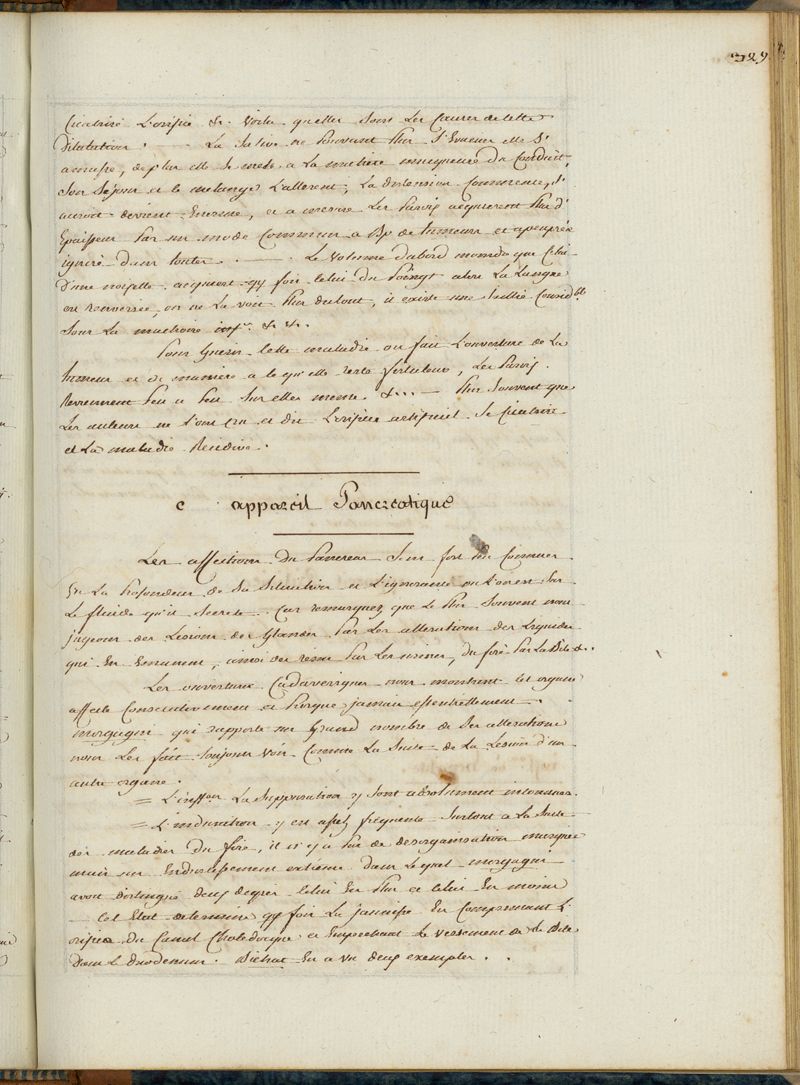 329
Cicatrisé L'orifice &c. Voila quelles sont Les Causes de cette
dilatation. — La Salive ne pouvant plus S'Evacuer elle S'
amasse, de plus elle se mele a La matiere muqueuse du Conduit,
Son Sejour et le melange L'alterent, La distension Commence, S'
accroit devient Enorme, et a mesure Les Parois acquierent plus d'
Epaisseur Par un mode Commun a Bp de tumeurs et apeuprès
ignoré dans toutes. — Le Volume d'abord moindre que Celui
d'une noisette acquiert qq fois celui du Poingt alors La Langue
en renversée, on ne La voit plus du tout, il existe une Saillie Considble
Sous La machoire infre. &c &c.
Pour Guerir cette maladie on fait L'ouverture de La
tumeur et de maniere a ce qu'elle reste fistuleuse, Les Parois
Reviennent Peu a Peu Sur elles meme. &c... — Plus Souvent que
Les auteurs ne L'ont cru et dit L'orifice artificiel Se Cicatrise
et La maladie Recidive.
c appareil Pancreatique
Les affections du Pancreas Sont fort peu Connues
En La Profondeur de Sa Situation et L'ignorance ou L'on est Sur
Le fluide qu'il Secrete. Car remarquez que Le Plus Souvent nous
jugeons des Lesions des Glandes Par Les alterations des Liquides
qui En Emanent, ainsi des reins Par Les urines, du foie Par La Bile &c.
Les ouvertures Cadaveriques nous montrent cet organe
affecté Consecutivement et Presque jamais essentiellement.
morgagni qui rapporte un Grand nombre de Ses alterations
nous Les fait toujours voir Comme La Suite de La Lesion d'un
autre organe.
= L'inflon La Suppuration y Sont absolument inconnues.
= L'induration y est assez frequente Surtout a La Suite
des maladies du foie, il n'y a Pas de desorganisation marquée
mais un Endurcissement extreme dans Lequel morgagni
avoit distingué deux degrés celui En Plus et celui En moins
— Cet Etat determine qq fois La jaunisse En Comprimant L'
orifice du Canal Choledoque et Empechant Le versement de La Bile
dans Le duodenum. Bichat En a vu deux exemples..